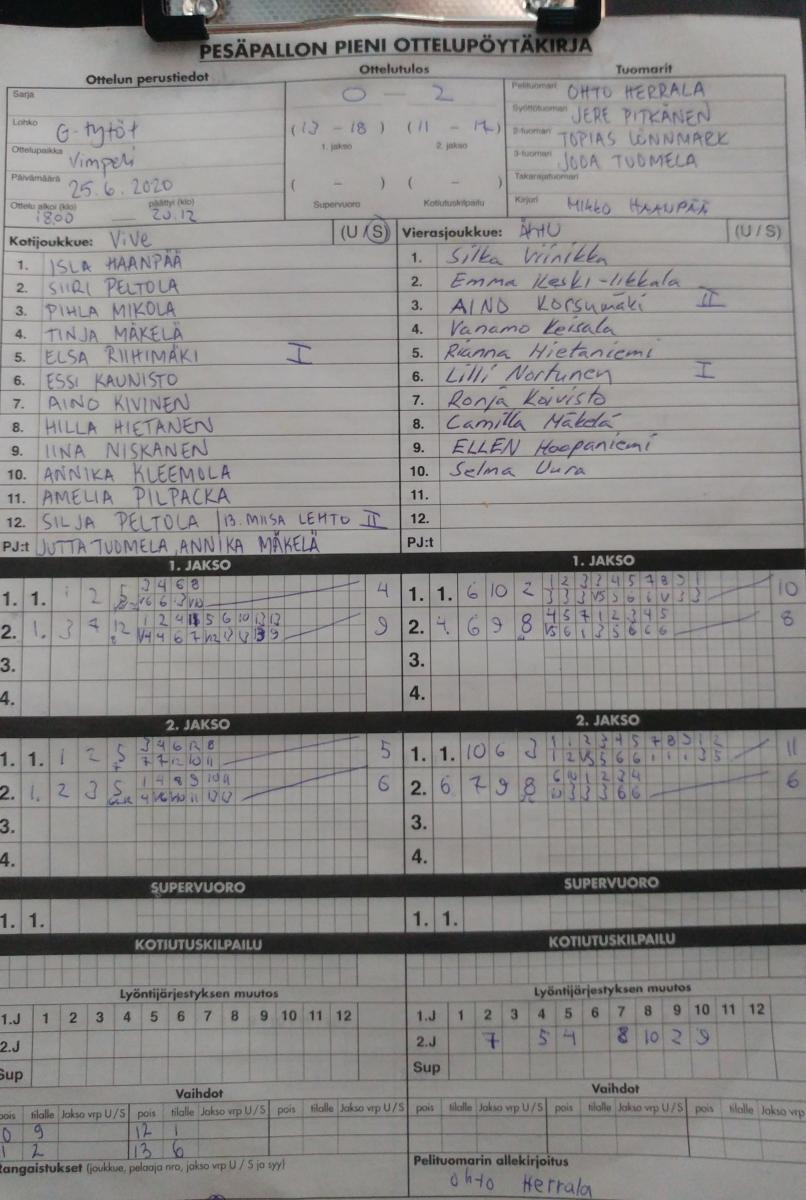 PESÄPALLON PIENI OTTELUPÖYTÄKIRJA
Ottelun perustiedot Ottelutulos Tuomarit
Sarja
0 - 2
Pelituomari OHTO HERRALA
Syöttötuomari JERE PITKÄNEN
Lohko G-tytöt
(13 - 18) (11 - 17)
2-tuomari TOPIAS LÖNNMARK
1. jakso 2. jakso
3-tuomari JODA TUOMELA
Ottelupaikka Vimpeli
Takarajatuomari
Päivämäärä 25.6.2020
( - ) ( - )
Supervuoro Kotiutuskilpailu
Kirjuri MIKKO HAANPÄÄ
Ottelu alkoi (klo) päättyi (klo)
18.00 20.12
Kotijoukkue: ViVe (U / S) Vierasjoukkue: ÄhtU (U / S)
1. ISLA HAANPÄÄ 1. Silka Viinikka
2. SIIRI PELTOLA 2. Emma Keski-Iikkala
3. PIHLA MIKOLA 3. AINO Korsumäki II
4. TINJA MÄKELÄ 4. Vanamo Keisala
5. ELSA RIIHIMÄKI I 5. Rianna Hietaniemi
6. ESSI KAUNISTO 6. Lilli Nortunen I
7. AINO KIVINEN 7. Ronja Koivisto
8. HILLA HIETANEN 8. Camilla Mäkelä
9. IINA NISKANEN 9. ELLEN Haapaniemi
10. ANNIKA KLEEMOLA 10. Selma Uura
11. AMELIA PILPACKA 11.
12. SILJA PELTOLA 13. MIISA LEHTO II 12.
PJ:t JUTTA TUOMELA, ANNIKA MÄKELÄ PJ:t
1. JAKSO 1. JAKSO
1. 1. 1 2 5 3 4 6 8 4 1. 1. 6 10 2 10
2. 1. 3 7 12 9 2. 4. 6 9 8 4 5 7 1 2 3 4 5 8
3. 3.
4. 4.
2. JAKSO 2. JAKSO
1. 1. 1 2 5 3 4 6 12 8 5 1. 1. 10 6 3 11
2. 1. 2 3 5 1 4 8 9 10 11 6 2. 6 7 9 8 6 10 1 2 3 4 6
3. 3.
4. 4.
SUPERVUORO SUPERVUORO
1. 1. 1. 1.
KOTIUTUSKILPAILU KOTIUTUSKILPAILU
Lyöntijärjestyksen muutos Lyöntijärjestyksen muutos
1.J 1 2 3 4 5 6 7 8 9 10 11 12 1.J 1 2 3 4 5 6 7 8 9 10 11 12
2.J 2.J 7 5 4 8 10 2 9
Sup Sup
Vaihdot Vaihdot
pois tilalle Jakso vrp U / S pois tilalle Jakso vrp U / S pois tilalle Jakso vrp U / S pois tilalle Jakso vrp U / S pois tilalle Jakso vrp U / S pois tilalle Jakso vrp
0 9 12 1
1 2 13 6
Rangaistukset (joukkue, pelaaja nro, jakso vrp U / S ja syy) Pelituomarin allekirjoitus
Ohto Herrala